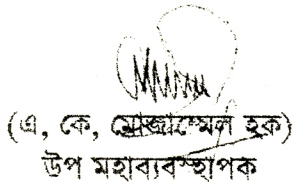 (এ, কে, মোজাম্মেল হক)
উপ মহাব্যবস্থাপক